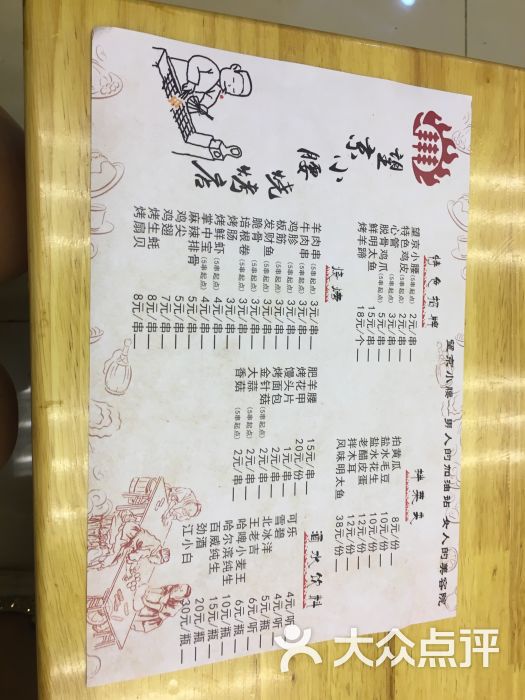 望京小腰
烧烤店
望京小腰——男人的加油站 女人的美容院
特色招牌
望京小腰(5串起点) 2元/串
特色鸡皮(5串起点) 2元/串
心管(5串起点) 3元/串
脱骨鸡爪(5串起点) 3元/串
鲜明太鱼 15元/串
烤羊蹄 18元/个
烧烤
羊肉串(5串起点) 3元/串
牛肉串(5串起点) 3元/串
鸡胗(5串起点) 3元/串
板筋(5串起点) 3元/串
发财鱼(5串起点) 3元/串
脆骨(5串起点) 3元/串
培根卷(5串起点) 3元/串
烤肠(5串起点) 3元/串
烤鲜虾(5串起点) 4元/串
掌中宝(5串起点) 4元/串
麻辣排骨 5元/串
鸡尖 5元/串
鸡翅 7元/串
烤生蚝 8元/串
烤扇贝 8元/串
肥羊腰 15元/串
烤花甲 20元/份
馒头片 1元/串
烤面包 2元/串
金针菇(5串起点) 2元/串
大蒜(5串起点) 2元/串
香菇(5串起点) 2元/串
拌菜类
拍黄瓜 8元/份
盐水毛豆 10元/份
盐水花生 10元/份
老醋皮蛋 12元/份
拌木耳 12元/份
风味明太鱼 38元/份
酒水饮料
可乐 4元/听
雪碧 4元/听
北冰洋 6元/瓶
王老吉 6元/听
哈啤小麦王 6元/瓶
哈尔滨纯生 10元/瓶
百威纯生 15元/瓶
劲酒 20元/瓶
江小白 30元/瓶
大众点评